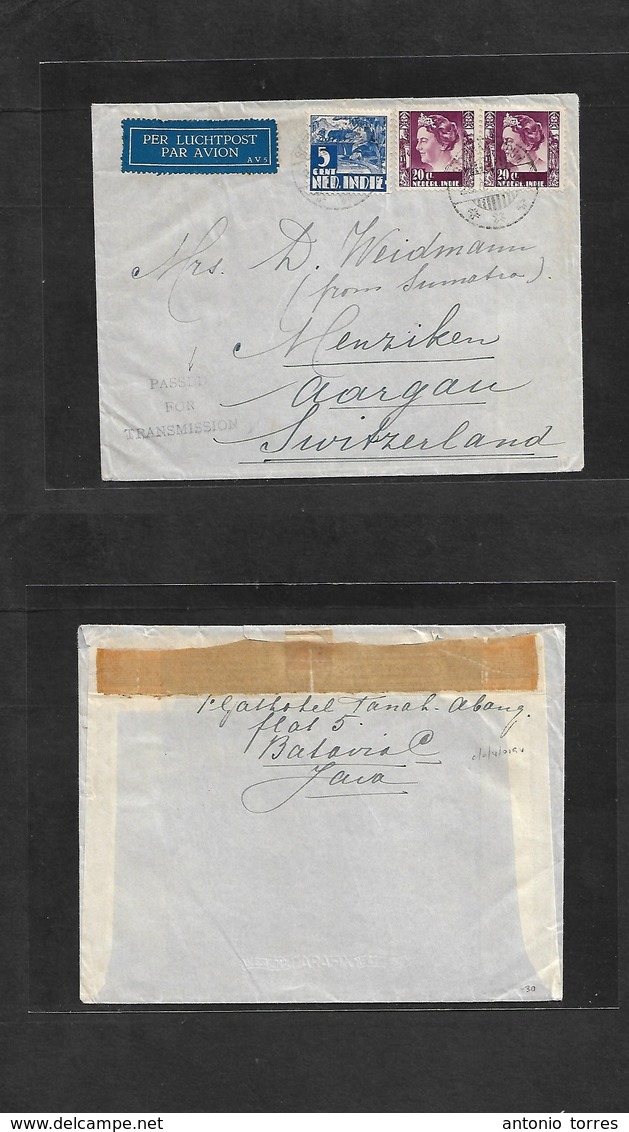 PER LUCHTPOST
PAR AVION
A V 5
5
CENT
NED. INDIE
20 ct
NEDERL. INDIE
20 ct
NEDERL. INDIE
Mrs. D. Weidmann
(from Sumatra).
Menziken
Aargau
Switzerland
PASSED
FOR
TRANSMISSION
Gathotel Tanah-Abang.
flat 5.
Batavia C
Java
30
www.delcampe.net
antonio torres